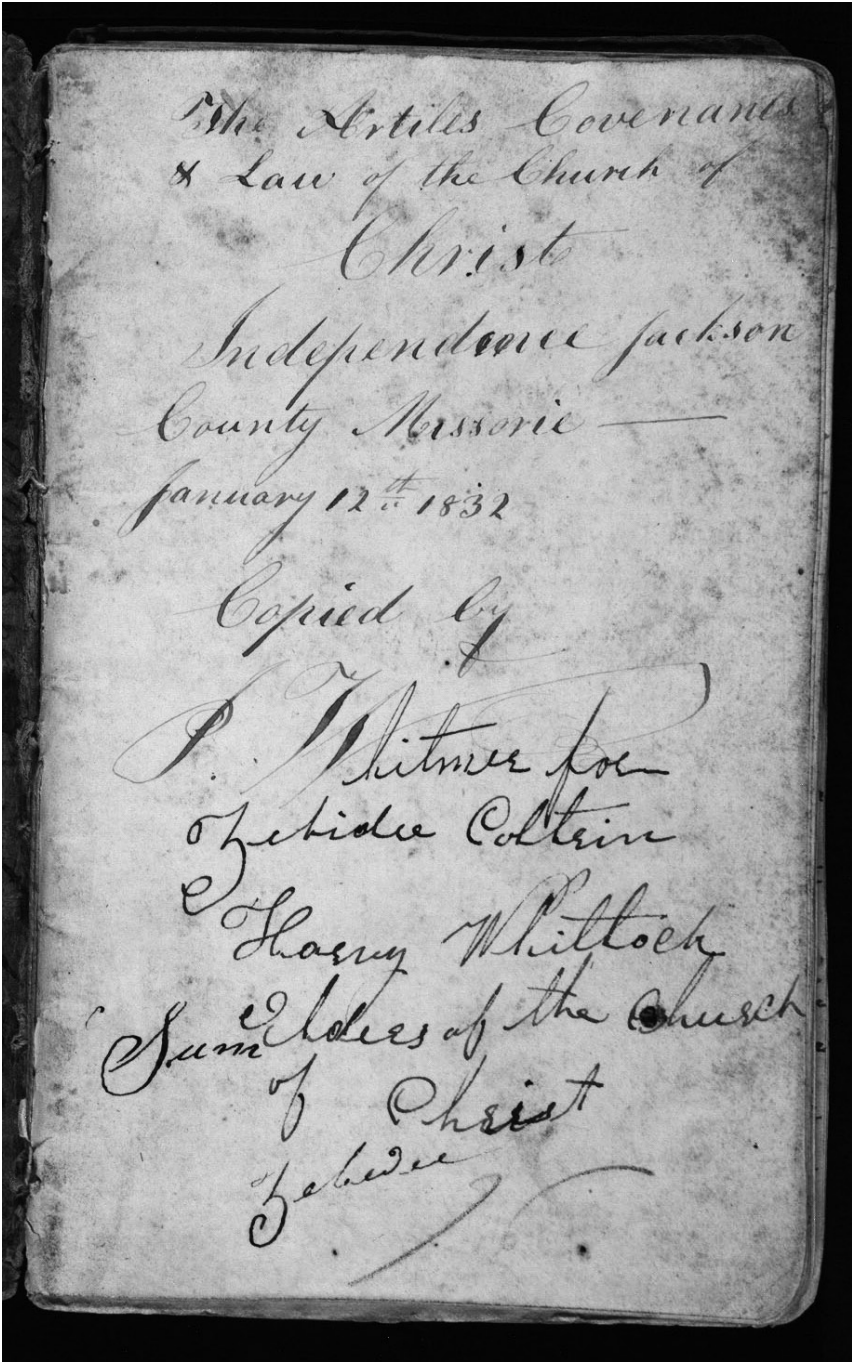 The Artiles Covenants
& Law of the Church of
Christ
Independence Jackson
County Missorie —
January 12th 1832
Copied by
P. Whitmer for
Zebidee Coltrin
Harvy Whitlock
Elders of the Church
Sum
of Christ
Zebedee